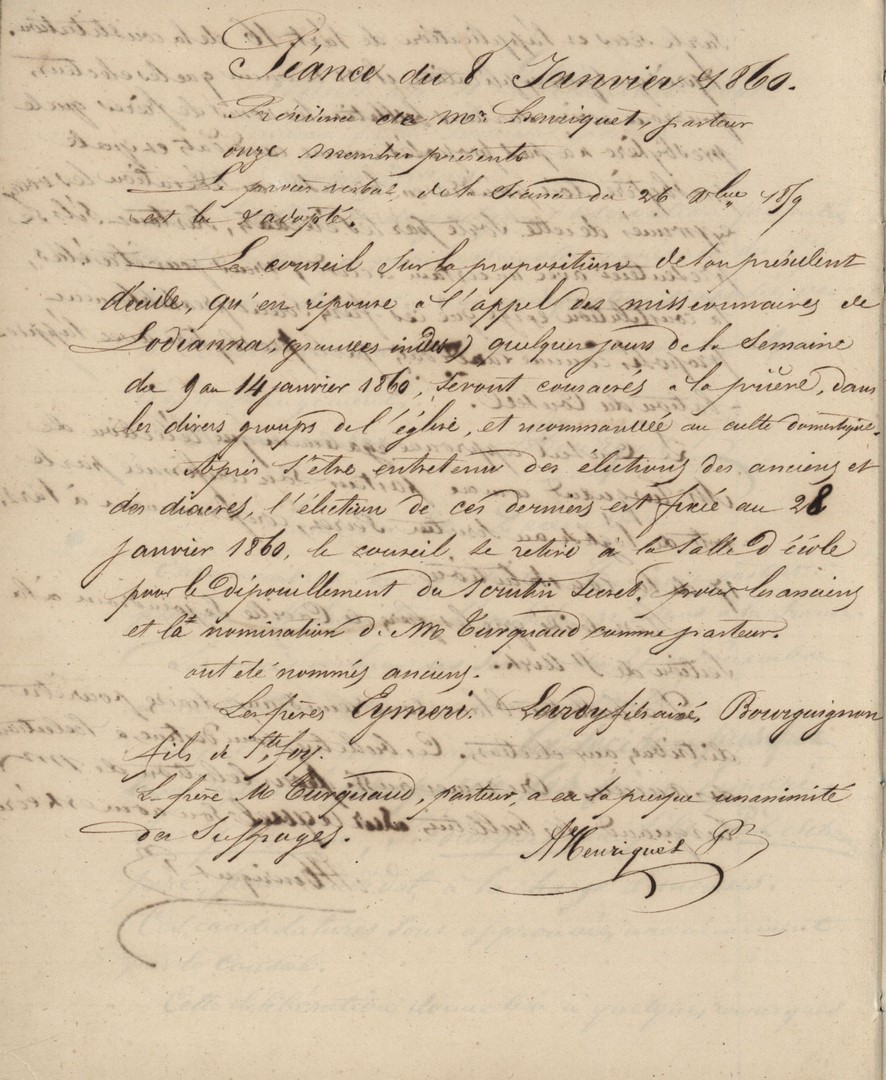 Séance du 8 Janvier 1860.
Présidence de Mr. Henriquet, pasteur
onze membres présents
Le procès verbal de la Séance du 26 Xbre 1859
est lu & adopté.
Le conseil sur la proposition de son président
décide, qu'en réponse à l'appel des missionnaires de
Lodianna, grandes indes) quelques jours de la Semaine
du 9 au 14 janvier 1860, seront consacrés à la prière, dans
les divers groups de l'église, et recommandée au culte domestique.
Après s'être entretenu des élections des anciens et
des diacres, l'élection de ces derniers est fixée au 28
janvier 1860, le conseil se retire à la Salle d'école
pour le dépouillement du scrutin secret, pour les anciens
et la nomination de M Turquand comme pasteur.
ont été nommés anciens.
Les frères Eymeri. Lardy fils ainé, Bourguignon
fils de Ste foy.
Le frère M Turquand, pasteur, a eu la presque unanimité
des Suffrages.
AHenriquet Pr